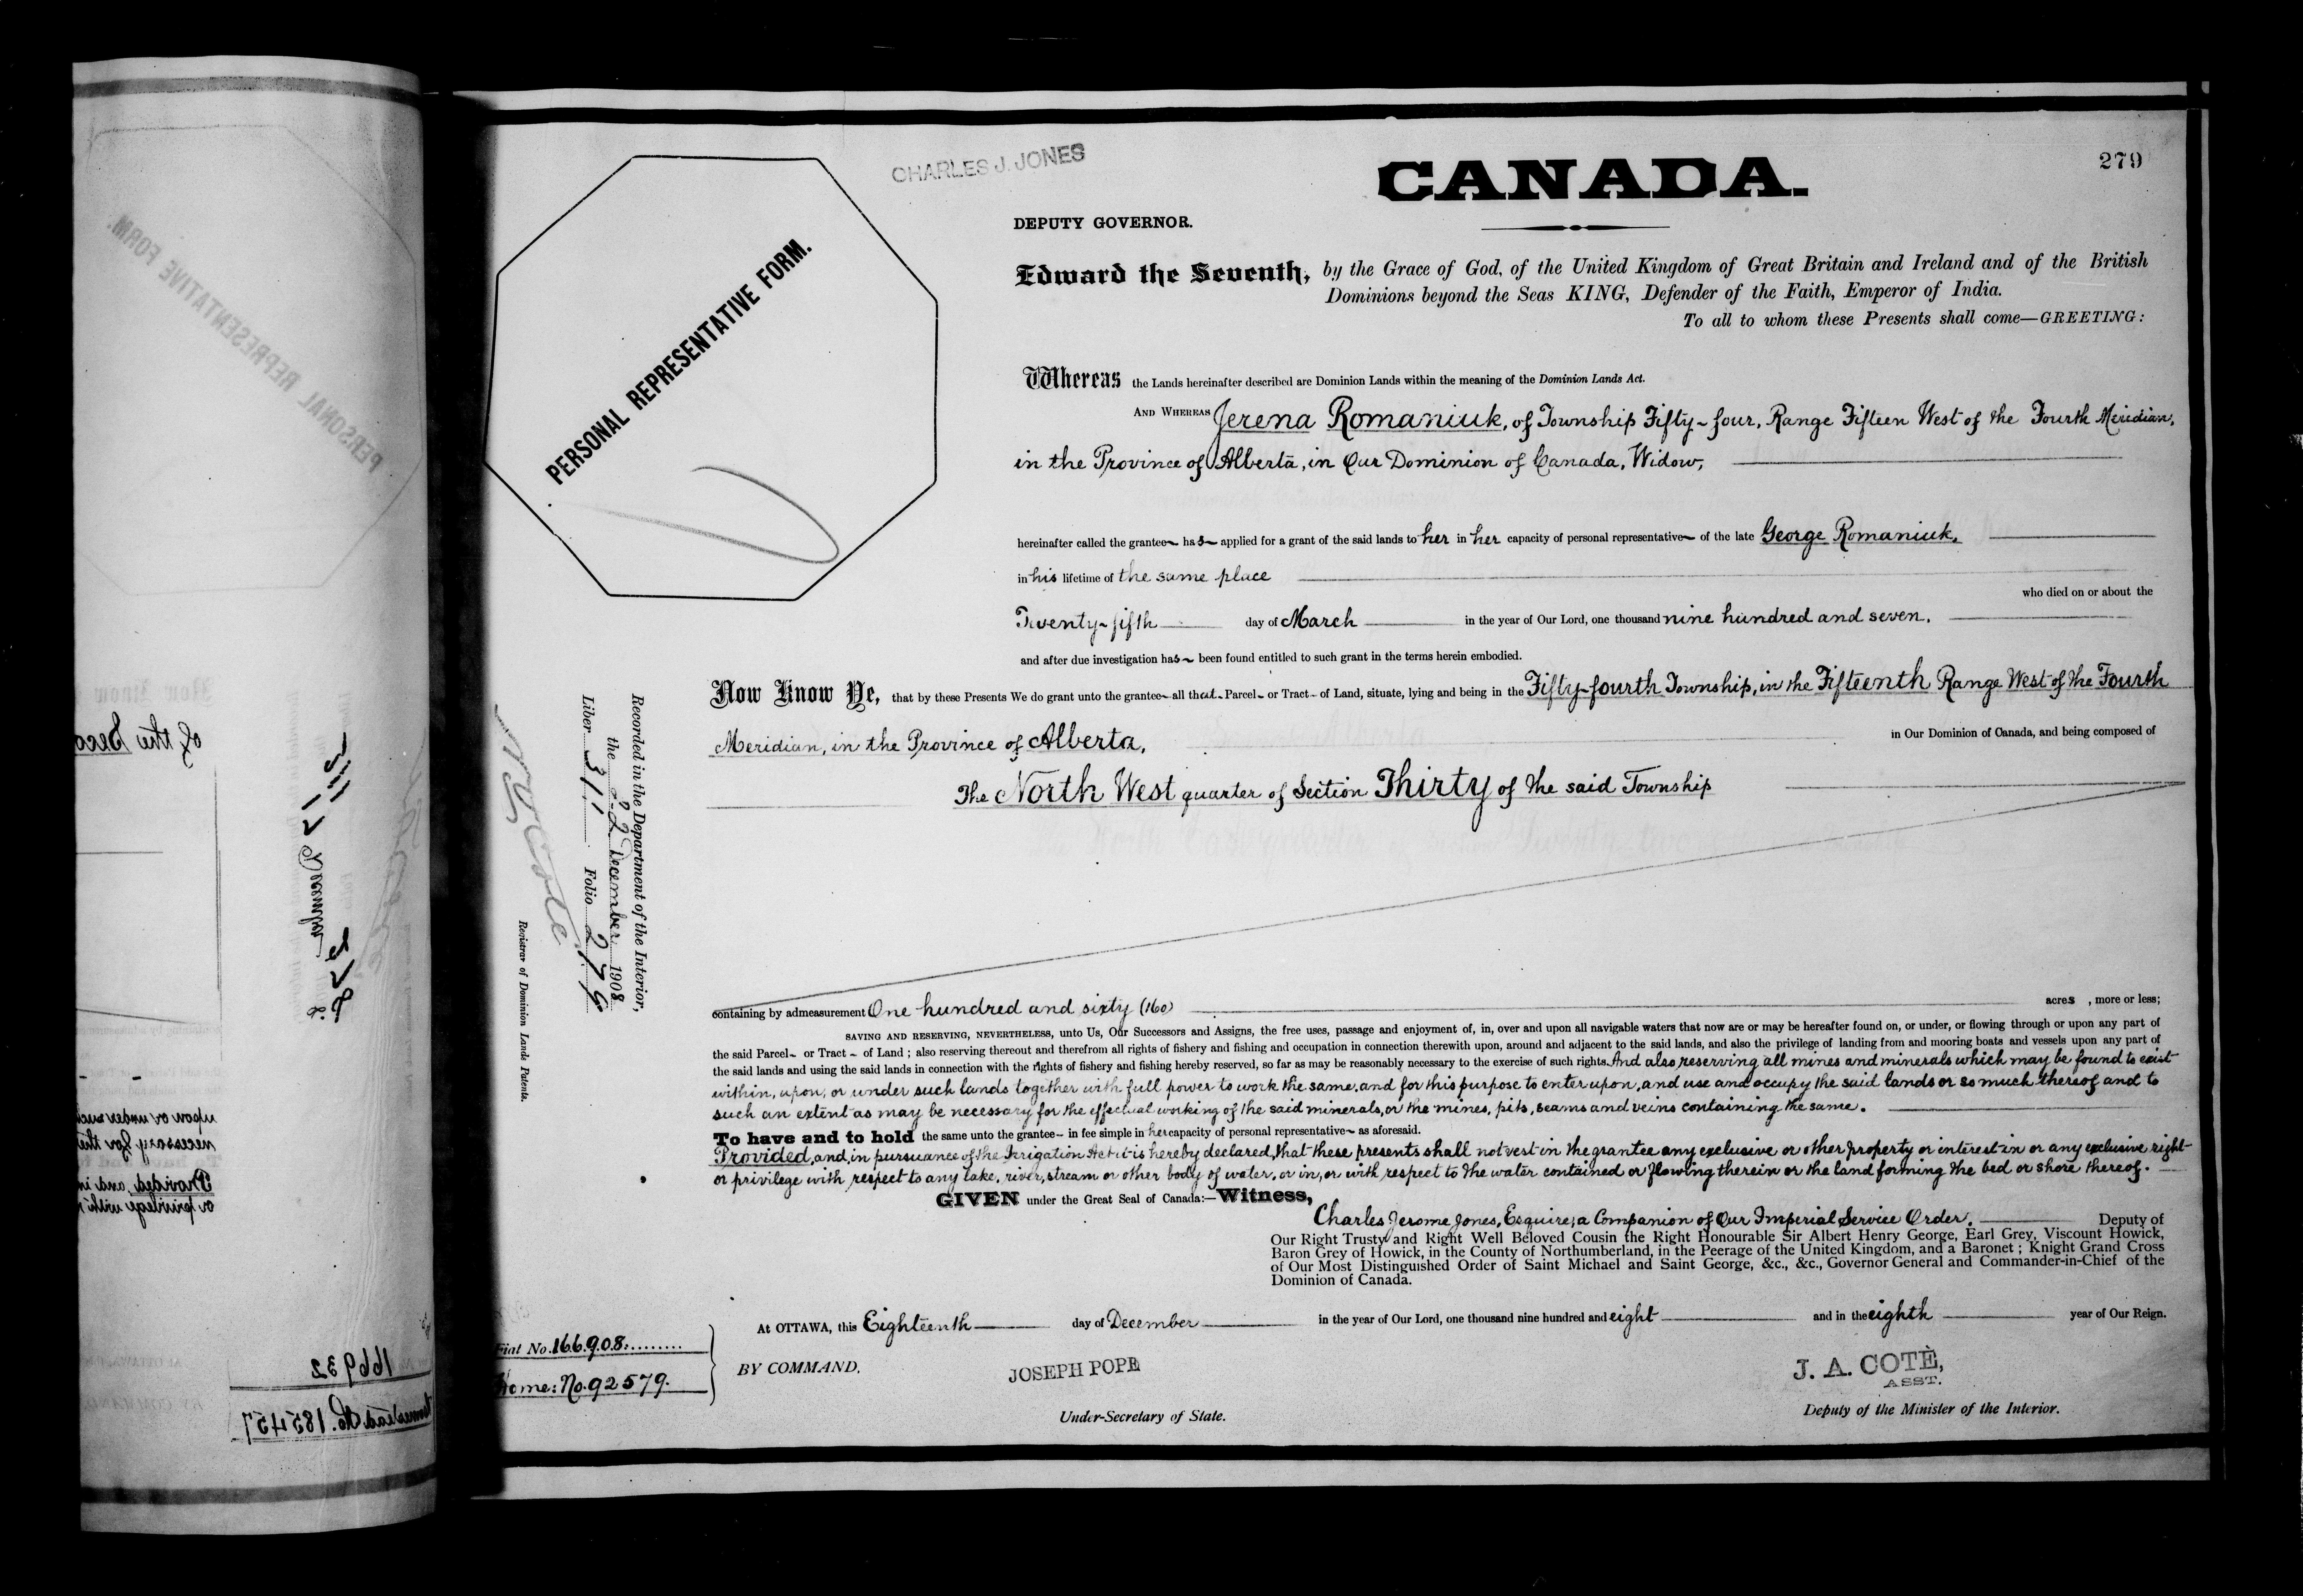 279
CHARLES J. JONES
CANADA.
DEPUTY GOVERNOR.
PERSONAL REPRESENTATIVE FORM.
Edward the Seventh, by the Grace of God, of the United Kingdom of Great Britain and Ireland and of the British
Dominions beyond the Seas KING, Defender of the Faith, Emperor of India.
To all to whom these Presents shall come—GREETING:
Whereas the Lands hereinafter described are Dominion Lands within the meaning of the Dominion Lands Act.
AND WHEREAS Jerena Romaniuk, of Township Fifty-four, Range Fifteen West of the Fourth Meridian,
in the Province of Alberta, in Our Dominion of Canada, Widow,
hereinafter called the grantee has applied for a grant of the said lands to her in her capacity of personal representative of the late George Romaniuk,
in his lifetime of the same place
who died on or about the
Twenty-fifth day of March in the year of Our Lord, one thousand nine hundred and seven.
and after due investigation has been found entitled to such grant in the terms herein embodied.
Now Know Ye, that by these Presents We do grant unto the grantee all that Parcel or Tract of Land, situate, lying and being in the Fifty-fourth Township, in the Fifteenth Range West of the Fourth
Meridian, in the Province of Alberta, in Our Dominion of Canada, and being composed of
The North West quarter of Section Thirty of the said Township
Recorded in the Department of the Interior,
the 22 December 1908
Liber 311 Folio 279
Registrar of Dominion Lands Patents.
containing by admeasurement One hundred and sixty (160) acres , more or less;
SAVING AND RESERVING, NEVERTHELESS, unto Us, Our Successors and Assigns, the free uses, passage and enjoyment of, in, over and upon all navigable waters that now are or may be hereafter found on, or under, or flowing through or upon any part of
the said Parcel or Tract of Land ; also reserving thereout and therefrom all rights of fishery and fishing and occupation in connection therewith upon, around and adjacent to the said lands, and also the privilege of landing from and mooring boats and vessels upon any part of
the said lands and using the said lands in connection with the rights of fishery and fishing hereby reserved, so far as may be reasonably necessary to the exercise of such rights. And also reserving all mines and minerals which may be found to exist
within, upon, or under such lands together with full power to work the same, and for this purpose to enter upon, and use and occupy the said lands or so much thereof and to
such an extent as may be necessary for the effectual working of the said minerals, or the mines, pits, seams and veins containing the same.
To have and to hold the same unto the grantee in fee simple in her capacity of personal representative as aforesaid.
Provided, and, in pursuance of the Irrigation Act it is hereby declared, that these presents shall not vest in the grantee any exclusive or other property or interest in or any exclusive right
or privilege with respect to any lake, river, stream or other body of water, or in, or with respect to the water contained or flowing therein or the land forming the bed or shore thereof.
GIVEN under the Great Seal of Canada:—Witness,
Charles Jerome Jones, Esquire, a Companion of Our Imperial Service Order, Deputy of
Our Right Trusty and Right Well Beloved Cousin the Right Honourable Sir Albert Henry George, Earl Grey, Viscount Howick,
Baron Grey of Howick, in the County of Northumberland, in the Peerage of the United Kingdom, and a Baronet ; Knight Grand Cross
of Our Most Distinguished Order of Saint Michael and Saint George, &c., &c., Governor General and Commander-in-Chief of the
Dominion of Canada.
At OTTAWA, this Eighteenth day of December in the year of Our Lord, one thousand nine hundred and eight and in the eighth year of Our Reign.
Fiat No. 166908
Home: No. 92579.
BY COMMAND.
JOSEPH POPE
Under-Secretary of State.
J. A. COTÈ,
ASST.
Deputy of the Minister of the Interior.